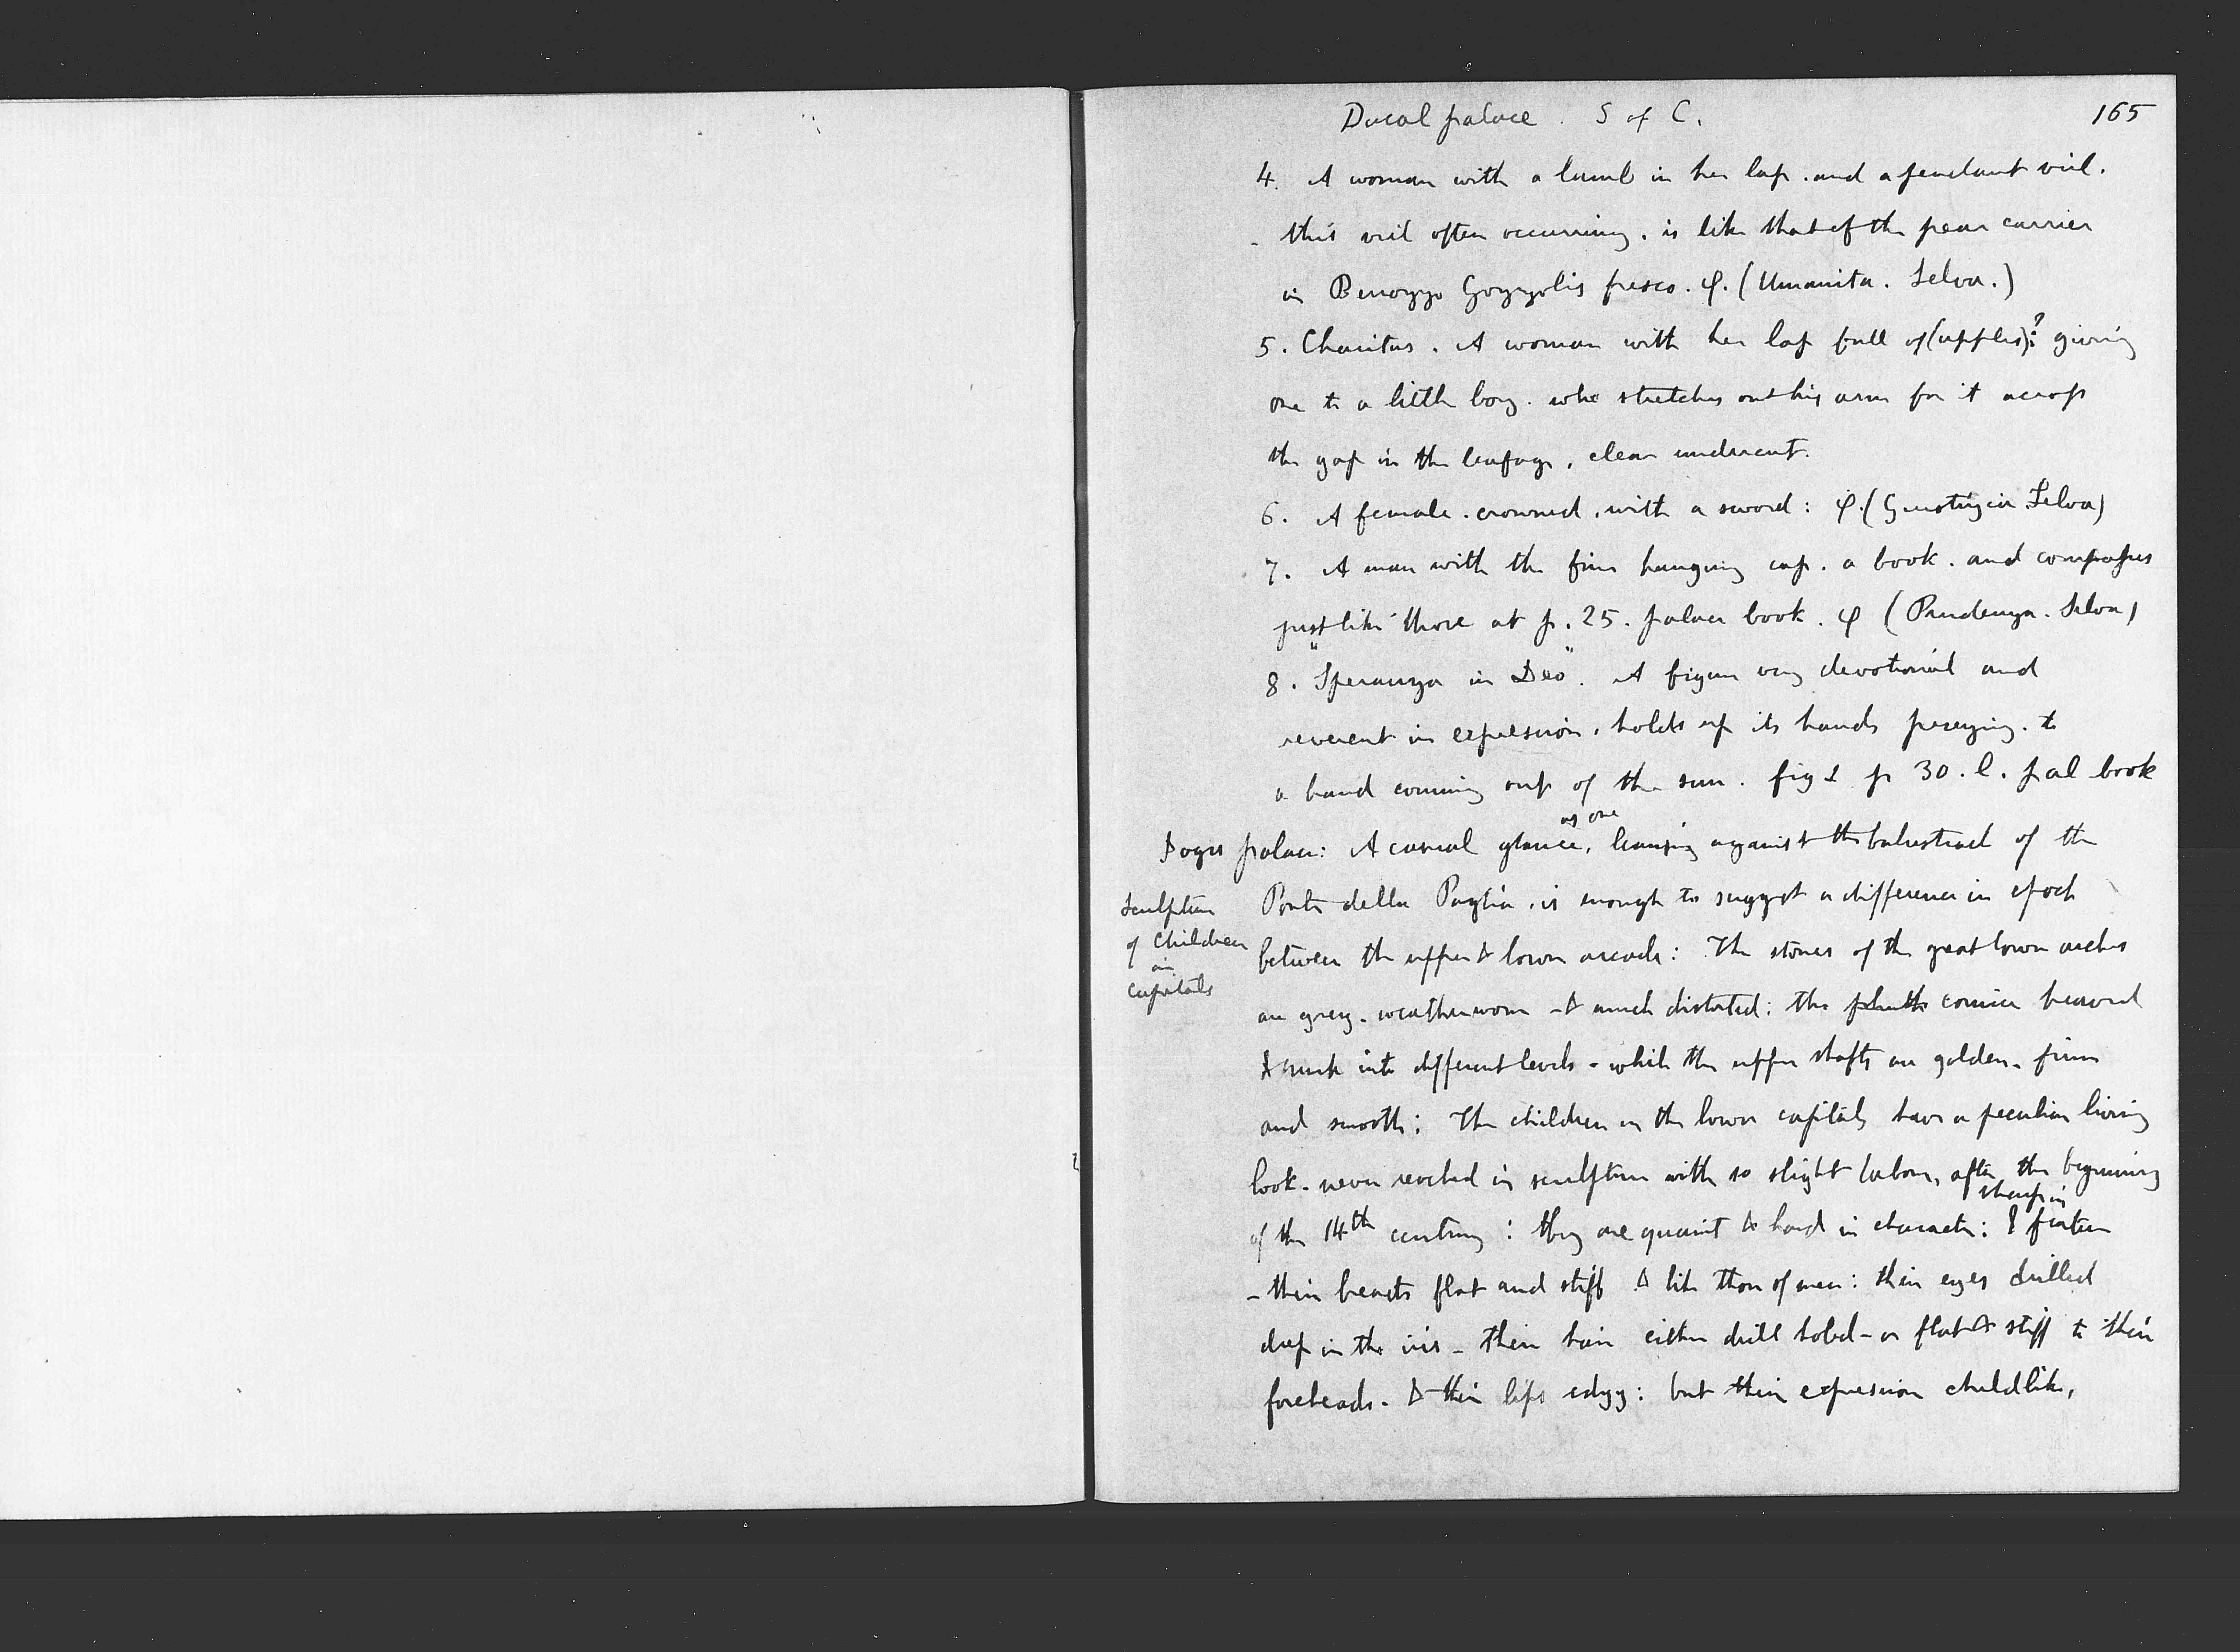 Ducal palace. S of C.
165
4. A woman with a lamb in her lap. and a pendant veil.
- this veil often occurring. is like that of the pear carrier
in Benozzo Gozzolis fresco. φ. (Umanita. Selva.)
5. Charitas. A woman with her lap full of (apples)? giving
one to a little boy. who stretches out his arm for it across
the gap in the leafage, clear undercut.
6. A female. crowned. with a sword: φ. (Giustizia Selva)
7. A man with the fine hanging cap. a book. and compasses
just like those at p. 25. palace book. φ (Prudenza. Selva)
8. "Speranza in Deo". A figure very devotional and
reverent in expression, holds up its hands praying. to
a hand coming out of the sun. fig p 30. l. pal book
Doges palace: A casual glance, as one leaning against the balustrade of the
Sculpture
of Children
in
Capitals
Ponte della Paglia, is enough to suggest a difference in epoch
between the upper & lower arcade: The stones of the great lower arches
are grey. weatherworn - & much distorted: the plinth cornice heaved
& sunk into different levels - while the upper shafts are golden. firm
and smooth: The children in the lower capitals have a peculiar living
look. never reached in sculpture with so slight labour, after the beginning
of the 14th century: they are quaint & hard in character: & sharp in feature
- their breasts flat and stiff & like those of men: their eyes drilled
deep in the iris - their hair either drill holed - or flat & stiff to their
foreheads. & their lips edgy: but their expression childlike,